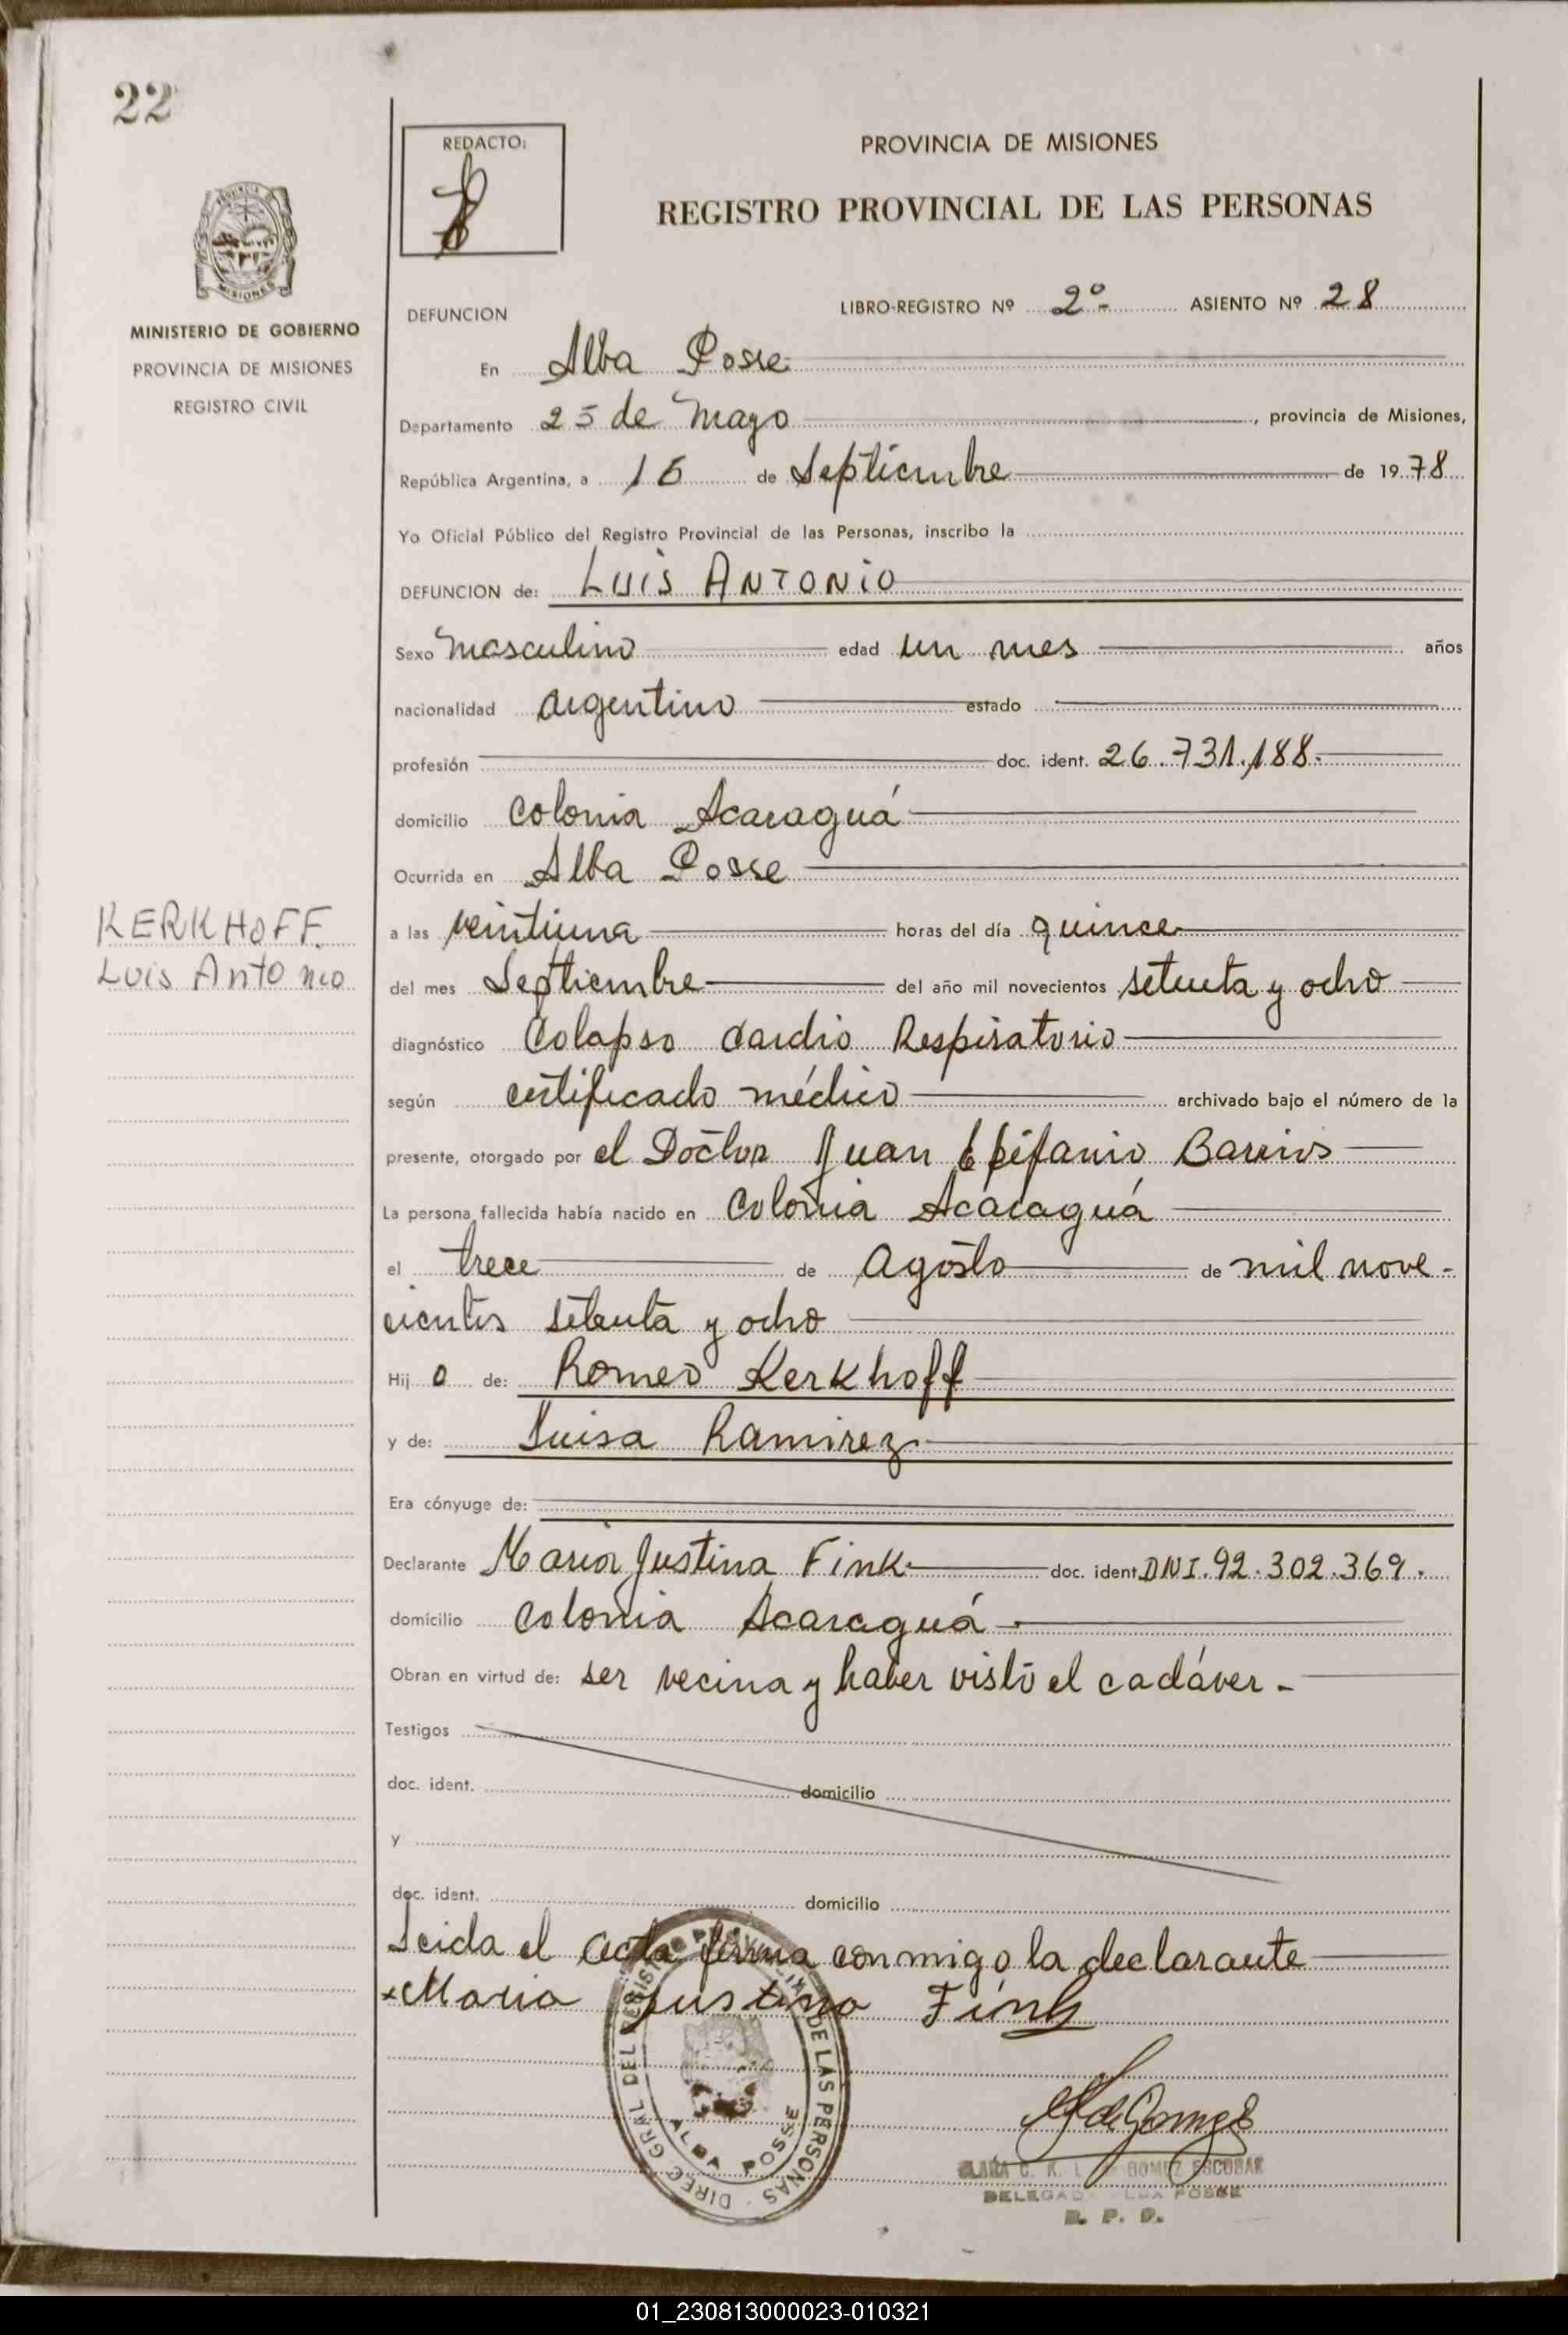 22
REDACTO:
PROVINCIA DE MISIONES
REGISTRO PROVINCIAL DE LAS PERSONAS
MISIONES
MINISTERIO DE GOBIERNO
PROVINCIA DE MISIONES
REGISTRO CIVIL
DEFUNCION
LIBRO-REGISTRO Nº 2º- ASIENTO Nº 28
En Alba Posse
Departamento 25 de Mayo, provincia de Misiones,
República Argentina, a 16 de Septiembre de 1978
Yo Oficial Público del Registro Provincial de las Personas, inscribo la
DEFUNCION de: LUIS ANTONIO
Sexo masculino edad un mes años
nacionalidad argentino estado
profesión doc. ident. 26.731.188.
domicilio Colonia Acaraguá
Ocurrida en Alba Posse
a las veintiuna horas del día quince
KERKHOFF.
Luis Antonio
del mes Septiembre del año mil novecientos setenta y ocho
diagnóstico Colapso Cardio Respiratorio
según certificado médico archivado bajo el número de la
presente, otorgado por el Doctor Juan Epifanio Barrios
La persona fallecida había nacido en Colonia Acaraguá
el trece de Agosto de mil nove-
cientos setenta y ocho
Hijo de: Romeo Kerkhoff
y de: Luisa Ramirez
Era cónyuge de:
Declarante Maria Justina Fink doc. ident. DNI.92.302.369.
domicilio Colonia Acaraguá
Obran en virtud de: ser vecina y haber visto el cadáver.-
Testigos
doc. ident. domicilio
y
doc. ident. domicilio
Leida el acta firma conmigo la declarante
x Maria Justina Fink
DIREC. GRAL DEL REGISTRO PROVINCIAL DE LAS PERSONAS
ALBA POSSE
de Gomez E
CLARA C. K. GOMEZ ESCOBAR
DELEGAD POSSE
R. P. P.
01_230813000023-010321